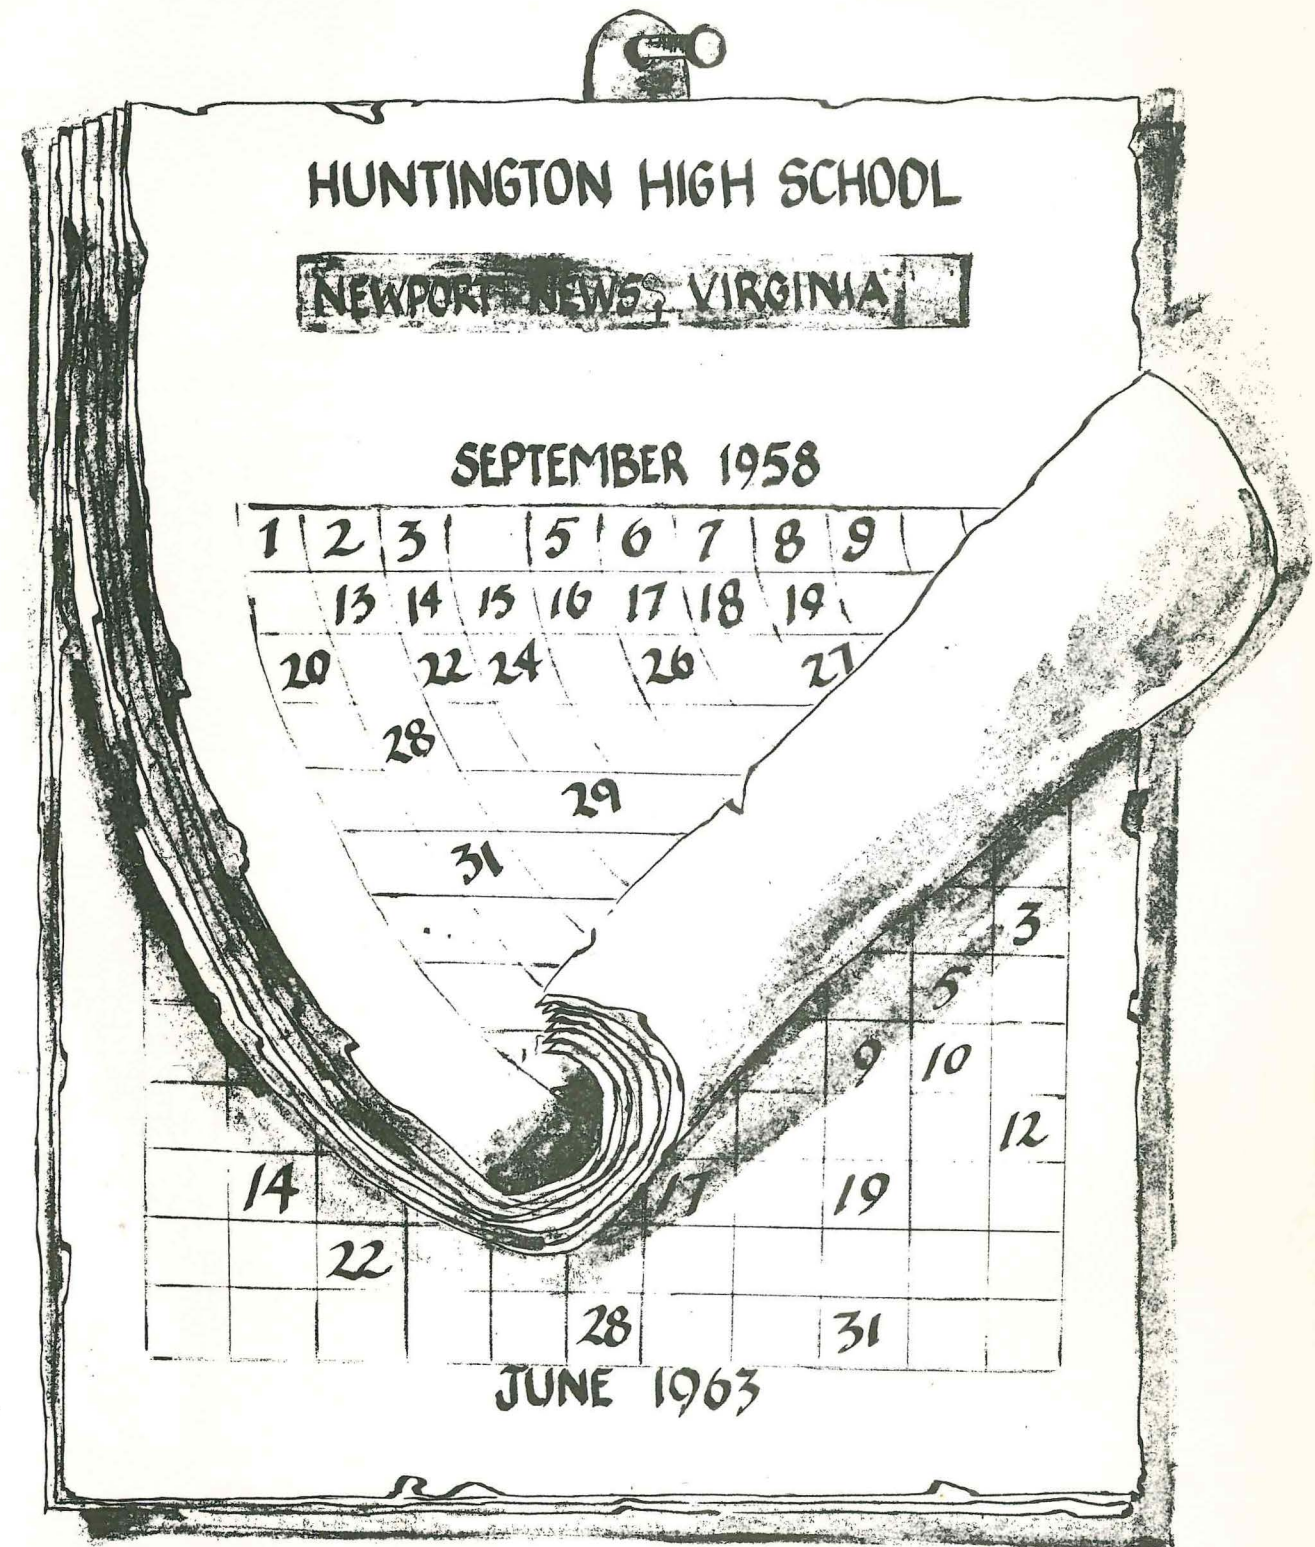 HUNTINGTON HIGH SCHOOL
NEWPORT NEWS, VIRGINIA
SEPTEMBER 1958
1 2 3 5 6 7 8 9
13 14 15 16 17 18 19
20 22 24 26 27
28
29
31
3
5
9 10
12
14 17 19
22
28 31
JUNE 1963